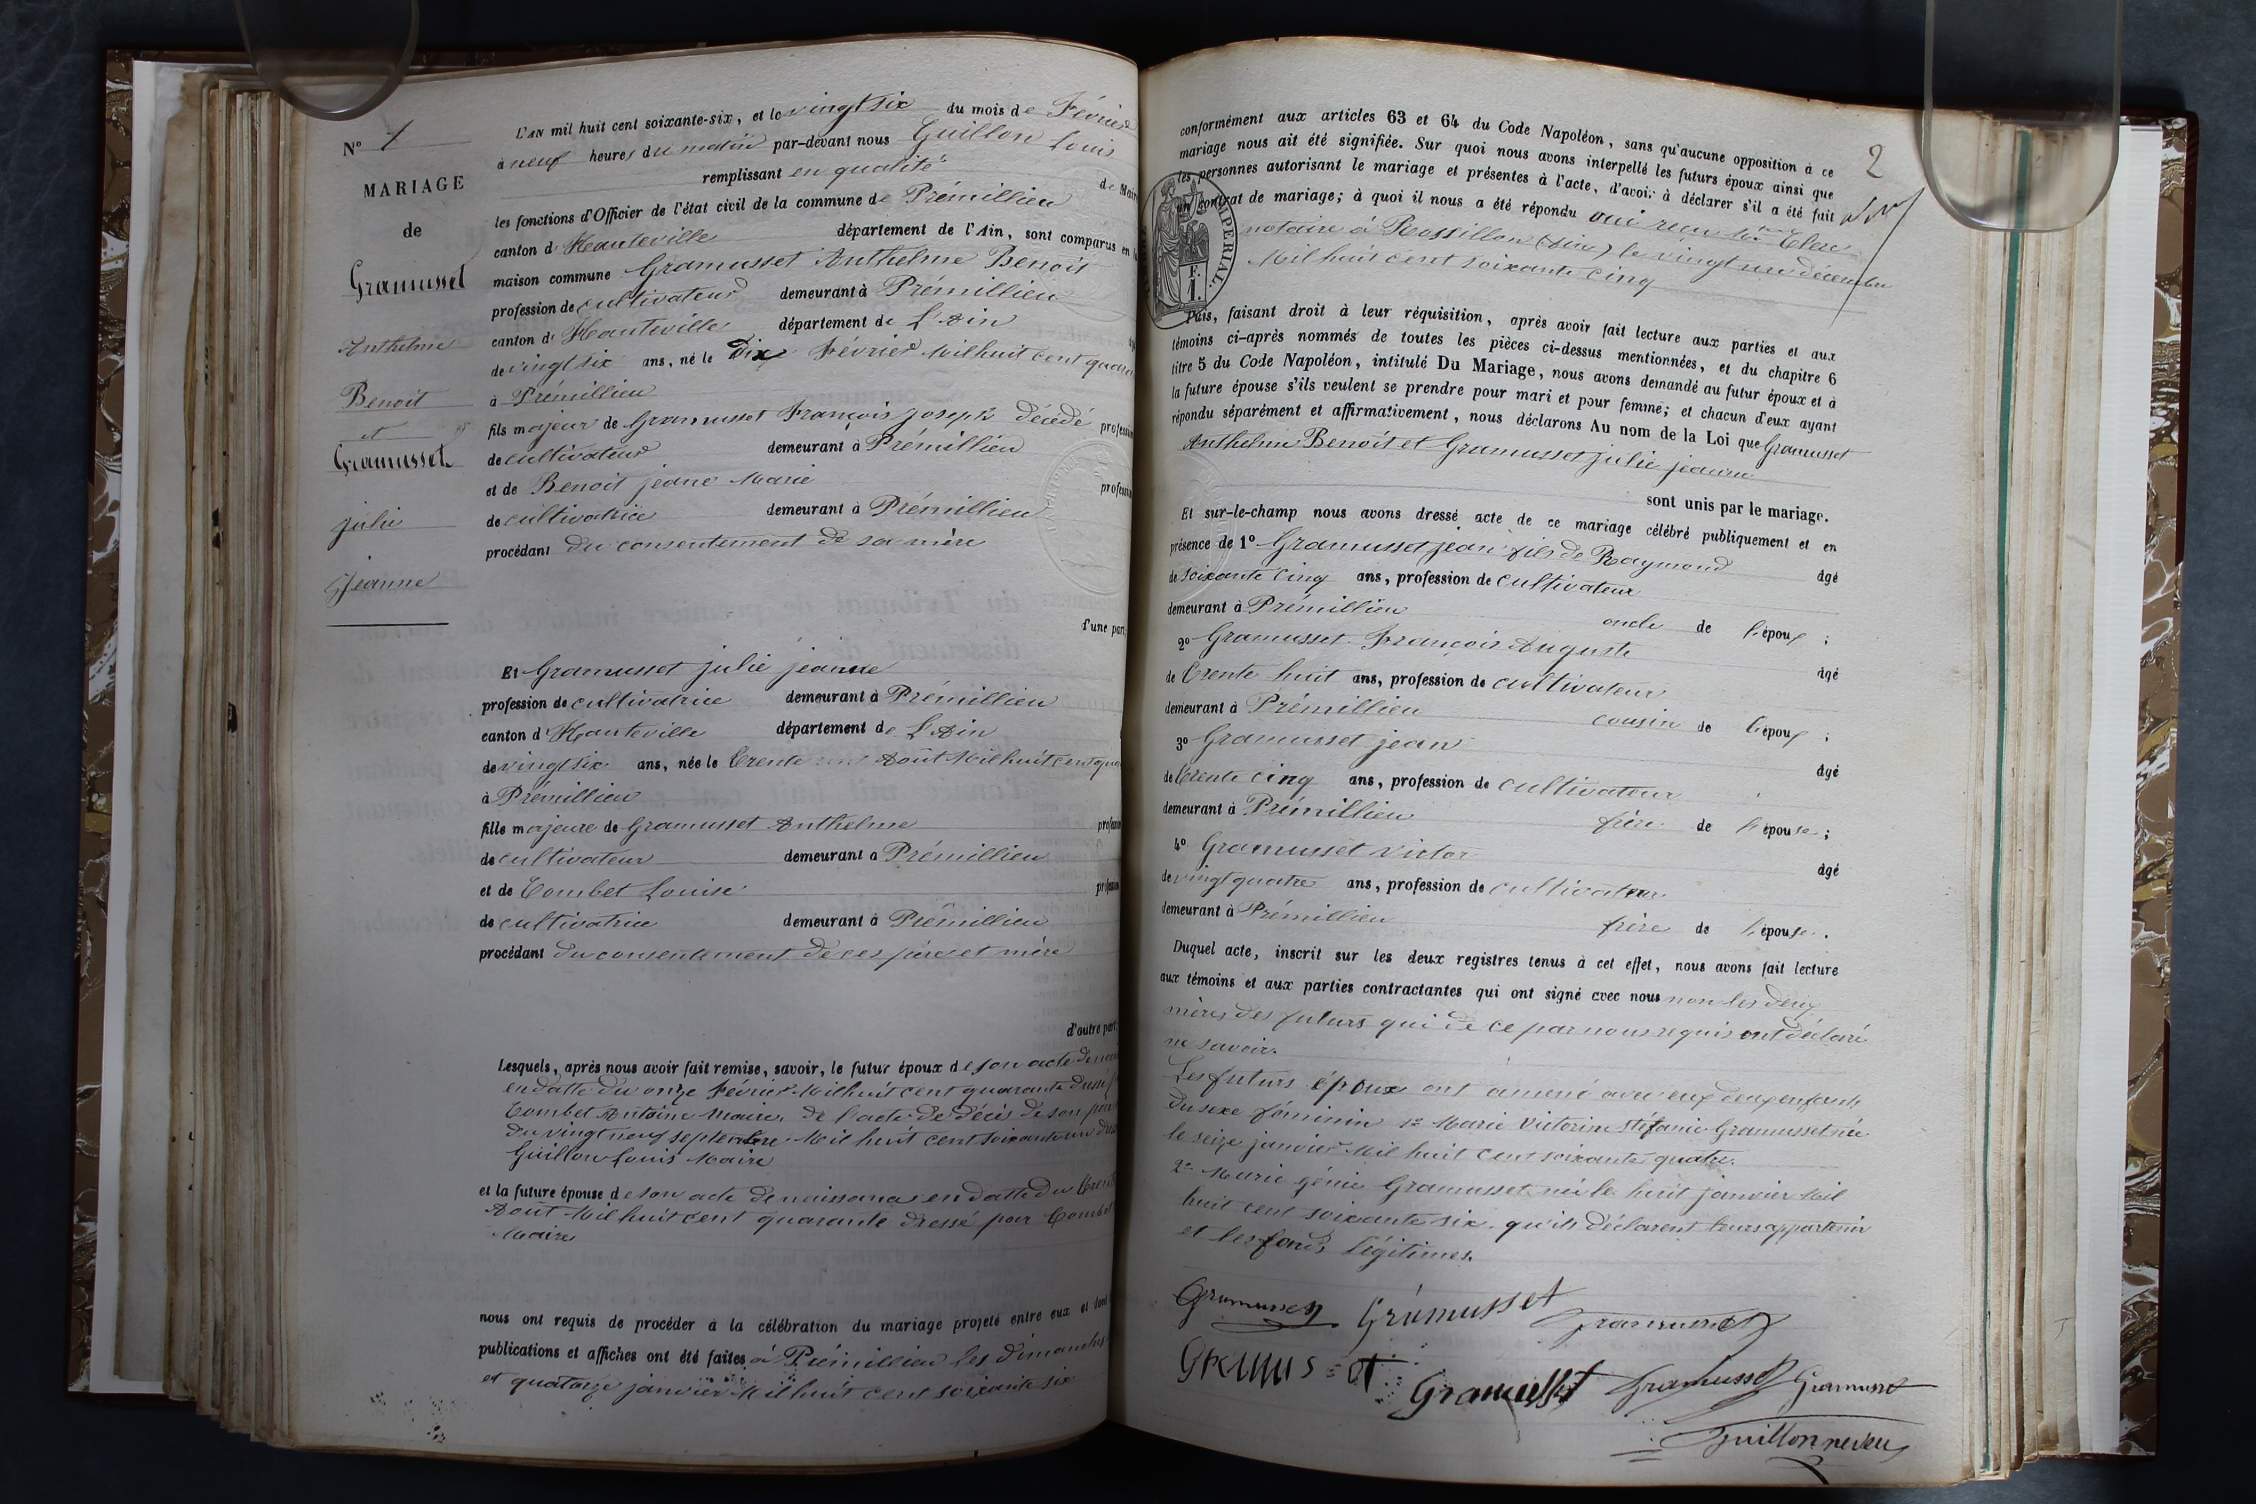 N° 1
MARIAGE
de
Gramusset
Anthelme
Benoit
et
Gramusset
julie
Jeanne
L'AN mil huit cent soixante-six, et le vingt six du mois de Février
à neuf heures du matin par-devant nous Guillon Louis
remplissant en qualité de Maire
les fonctions d'Officier de l'état civil de la commune de Prémillieu
canton d'Hauteville département de l'Ain, sont comparus en la
maison commune Gramusset Anthelme Benoit
profession de cultivateur demeurant à Prémillieu
canton d'Hauteville département de L'Ain
de vingt six ans, né le Dix Février Mil huit cent quara
à Prémillieu
fils majeur de Gramusset François joseph décédé profession
de cultivateur demeurant à Prémillieu
et de Benoit jeane Marie profession
de cultivatrice demeurant à Prémillieu
procédant du consentement de sa mère
d'une part,
Et Gramusset julie jeanne
profession de cultivatrice demeurant à Prémillieu
canton d'Hauteville département de L'Ain
de vingt six ans, née le trente Août Mil huit cent qua
à Prémillieu
fille majeure de Gramusset Anthelme profession
de cultivateur demeurant à Prémillieu
et de Combet Louise profession
de cultivatrice demeurant à Prémillieu
procédant du consentement de ces père et mère
d'autre part;
Lesquels, après nous avoir fait remise, savoir, le futur époux de son acte de
en datte du onze Février Mil huit cent quarante dressé p
Combet Antoine Maire, de l'acte de décès de son père
du vingt neuf septembre Mil huit cent soixante un
Guillon Louis Maire
et la future épouse de son acte de naissance en datte du trente
Août Mil huit cent quarante dressé par Combet
Maire
nous ont requis de procéder à la célébration du mariage projeté entre eux et dont
publications et affiches ont été faites à Prémillieu les dimanches
et quatorze janvier Mil huit cent soixante six
2
conformément aux articles 63 et 64 du Code Napoléon, sans qu'aucune opposition à ce
mariage nous ait été signifiée. Sur quoi nous avons interpellé les futurs époux ainsi que
les personnes autorisant le mariage et présentes à l'acte, d'avoir à déclarer s'il a été fait
un contrat de mariage; à quoi il nous a été répondu oui reçu Clerc
notaire à Rossillon (Ain) le vingt un décembre
Mil huit cent soixante cinq
IMPERIAL.
F.
I.
Puis, faisant droit à leur réquisition, après avoir fait lecture aux parties et aux
témoins ci-après nommés de toutes les pièces ci-dessus mentionnées, et du chapitre 6
titre 5 du Code Napoléon, intitulé Du Mariage, nous avons demandé au futur époux et à
la future épouse s'ils veulent se prendre pour mari et pour femme; et chacun d'eux ayant
répondu séparément et affirmativement, nous déclarons Au nom de la Loi que Gramusset
Anthelme Benoit et Gramusset julie jeanne
sont unis par le mariage.
Et sur-le-champ nous avons dressé acte de ce mariage célébré publiquement et en
présence de 1° Gramusset jean fils de Raymond âgé
de soixante cinq ans, profession de cultivateur
demeurant à Prémillieu oncle de l'époux ;
2° Gramusset François Auguste âgé
de trente huit ans, profession de cultivateur
demeurant à Prémillieu cousin de l'époux ;
3° Gramusset jean âgé
de trente cinq ans, profession de cultivateur
demeurant à Prémillieu frère de l'épouse ;
4° Gramusset victor âgé
de vingt quatre ans, profession de cultivateur
demeurant à Prémillieu frère de l'épouse.
Duquel acte, inscrit sur les deux registres tenus à cet effet, nous avons fait lecture
aux témoins et aux parties contractantes qui ont signé avec nous non les deux
mères des futurs qui de ce par nous requis ont déclaré
ne savoir.
Les futurs époux ont amené avec eux deux enfants
du sexe féminin 1° Marie Victorine Stéfanie Gramusset née
le seize janvier Mil huit cent soixante quatre.
2° Marie génie Gramusset née le huit janvier Mil
huit cent soixante six. qu'ils déclarent leurs appartenir
et les fonds légitimes.
Gramusset Gramusset Gramusset
Gramusset Gramusset Gramusset Gramusset
Guillon neveu